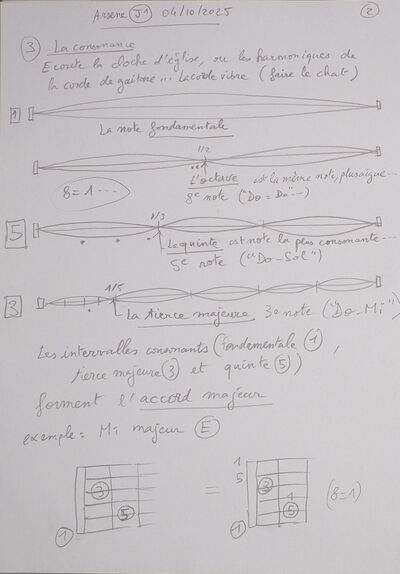 Arsene J1 04/10/2025 2
3 La consonance
Ecoute la cloche d'église, ou les harmoniques de
la corde de guitare... La corde vibre (faire le chat)
1
La note fondamentale
1/2
8=1...
L'octave est la même note, plus aigüe...
8e note ("Do = Do"...)
5
1/3
La quinte est note la plus consonante...
5e note ("Do-Sol")
3
1/5
La tierce majeure 3e note ("Do-Mi")
Les intervalles consonants (fondamentale 1,
tierce majeure 3 et quinte 5)
forment l'accord majeur
exemple: Mi majeur E
1
5
3
3
1
5
=
5
(8=1)
1
1